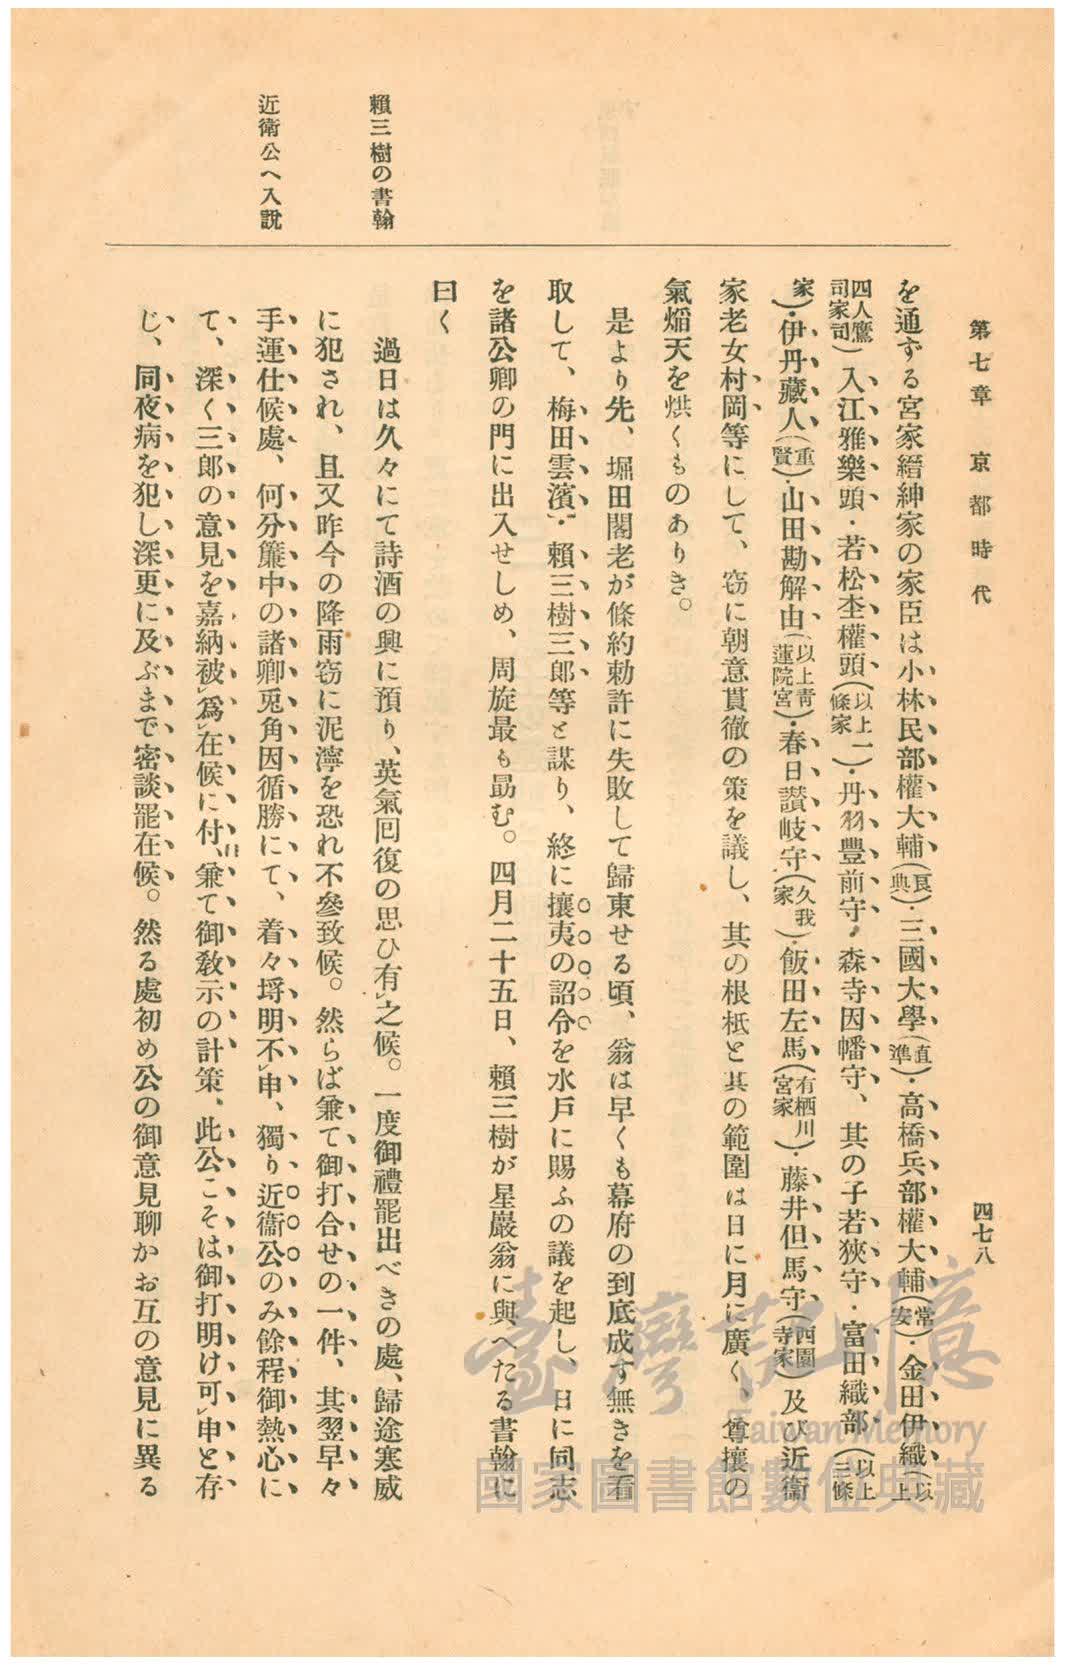 第七章 京都時代
四七八
を通ずる宮家縉紳家の家臣は小林民部權大輔(良典)・三國大學(直準)・高橋兵部權大輔(常安)・金田伊織(以上
四人鷹司家司)入江雅樂頭・若松杢權頭(以上一條家)・丹羽豐前守・森寺因幡守、其の子若狹守・富田織部(以上三條
家)・伊丹藏人(重賢)・山田勘解由(以上靑蓮院宮)・春日讃岐守(久我家)・飯田左馬(有栖川宮家)・藤井但馬守(西園寺家)及び近衞
家老女村岡等にして、窃に朝意貫徹の策を議し、其の根柢と其の範圍は日に月に廣く、尊攘の
氣焔天を烘くものありき。
是より先、堀田閣老が條約勅許に失敗して歸東せる頃、翁は早くも幕府の到底成す無きを看
取して、梅田雲濱・賴三樹三郎等と謀り、終に攘夷の詔令を水戸に賜ふの議を起し、日に同志
を諸公卿の門に出入せしめ、周旋最も勗む。四月二十五日、賴三樹が星巖翁に與へたる書翰に
曰く
賴三樹の書翰
過日は久々にて詩酒の興に預り、英氣回復の思ひ有レ之候。一度御禮罷出べきの處、歸途寒威
に犯され、且又昨今の降雨窃に泥濘を恐れ不參致候。然らば兼て御打合せの一件、其翌早々
手運仕候處、何分簾中の諸卿兎角因循勝にて、着々埓明不レ申、獨り近衞公のみ餘程御熱心に
近衛公へ入說
て、深く三郎の意見を嘉納被レ爲レ在候に付、兼て御敎示の計策、此公こそは御打明け可レ申と存
じ、同夜病を犯し深更に及ぶまで密談罷在候。然る處初め公の御意見聊かお互の意見に異る
臺灣記憶
Taiwan Memory
國家圖書館數位典藏